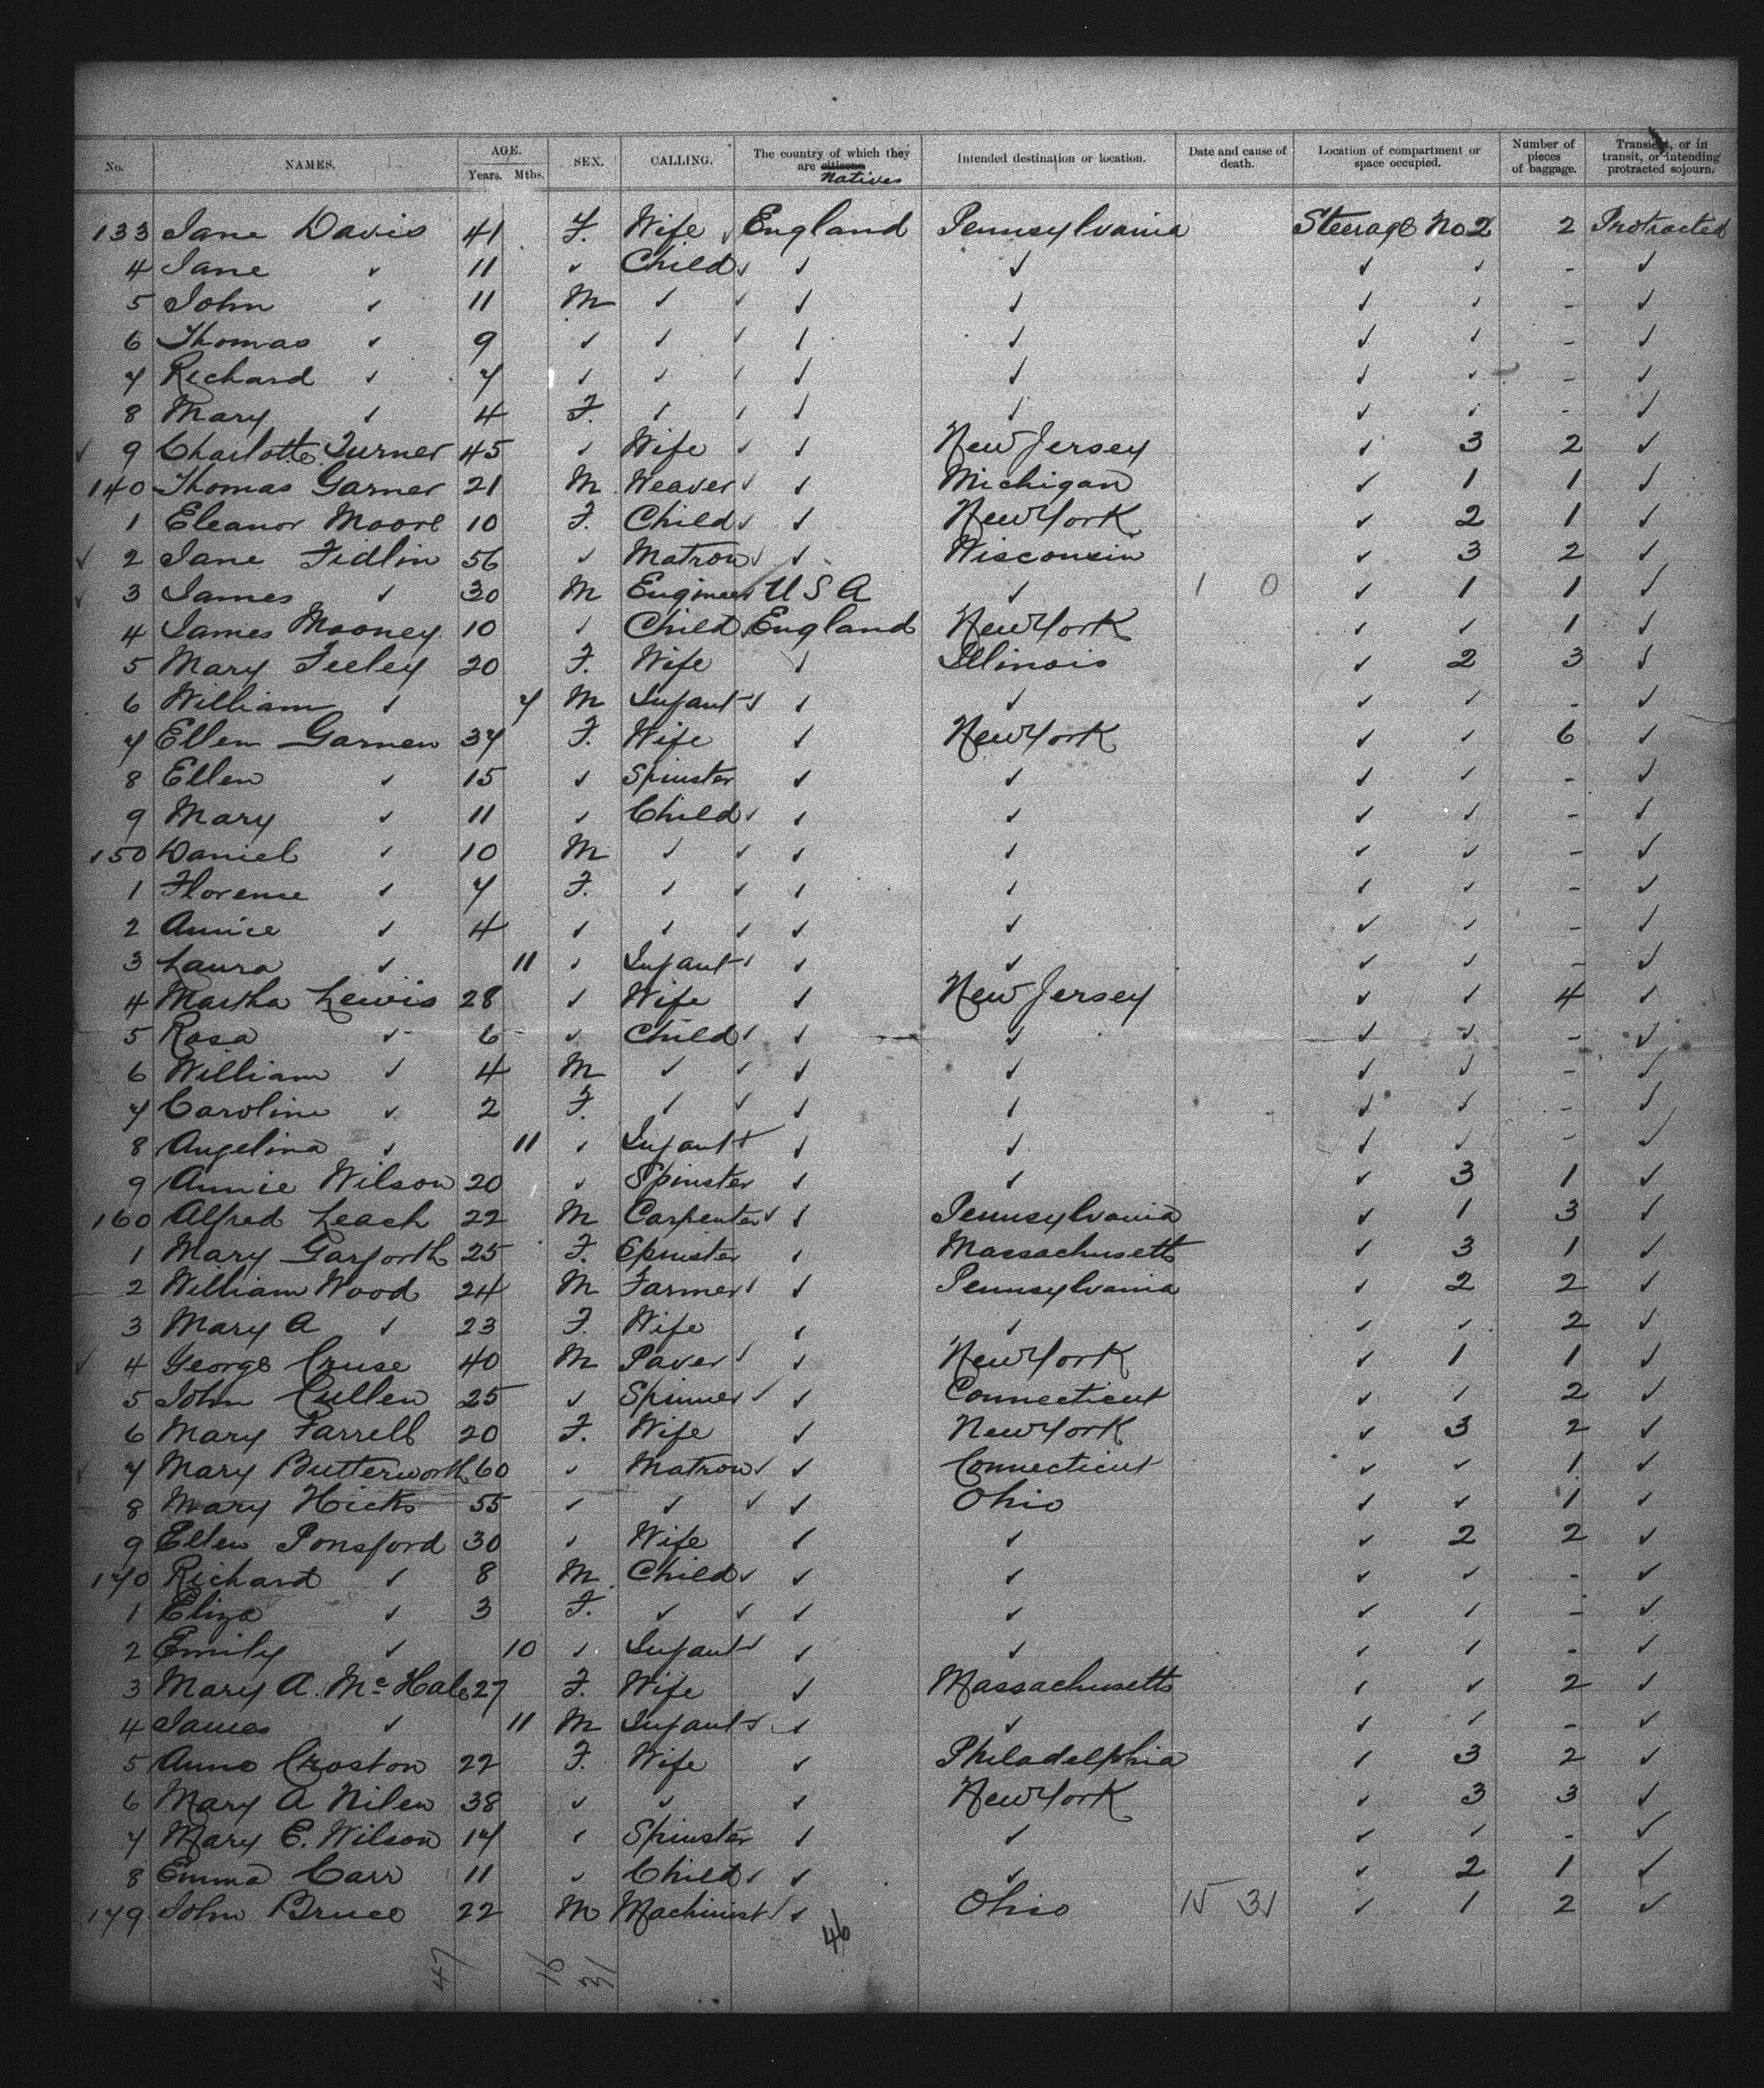 No. NAMES. AGE. Years. Mths. SEX. CALLING. The country of which they are citizens Natives Intended destination or location. Date and cause of death. Location of compartment or space occupied. Number of pieces of baggage. Transient, or in transit, or intending protracted sojourn.
133 Jane Davis 41 F. Wife ✓ England Pennsylvania Steerage No 2 2 Protracted
4 Jane ✓ 11 ✓ Child ✓ ✓ ✓ ✓ ✓ - ✓
5 John ✓ 11 M ✓ ✓ ✓ ✓ ✓ ✓ - ✓
6 Thomas ✓ 9 ✓ ✓ ✓ ✓ ✓ ✓ ✓ - ✓
7 Richard ✓ 7 ✓ ✓ ✓ ✓ ✓ ✓ ✓ - ✓
8 Mary ✓ 4 F. ✓ ✓ ✓ ✓ ✓ ✓ - ✓
✓ 9 Charlotte Turner 45 ✓ Wife ✓ ✓ New Jersey ✓ 3 2 ✓
140 Thomas Garner 21 M Weaver ✓ ✓ Michigan ✓ 1 1 ✓
1 Eleanor Moore 10 F. Child ✓ ✓ New York ✓ 2 1 ✓
✓ 2 Jane Fidlin 56 ✓ Matron ✓ ✓ Wisconsin ✓ 3 2 ✓
✓ 3 James ✓ 30 M Engineer U S A ✓ 1 0 ✓ 1 1 ✓
4 James Mooney 10 ✓ Child England New York ✓ ✓ 1 ✓
5 Mary Feeley 20 F. Wife ✓ Illinois ✓ 2 3 ✓
6 William ✓ 7 M Infant ✓ ✓ ✓ ✓ ✓ - ✓
7 Ellen Garnen 37 F. Wife ✓ New York ✓ ✓ 6 ✓
8 Ellen ✓ 15 ✓ Spinster ✓ ✓ ✓ ✓ - ✓
9 Mary ✓ 11 ✓ Child ✓ ✓ ✓ ✓ ✓ - ✓
150 Daniel ✓ 10 M ✓ ✓ ✓ ✓ ✓ ✓ - ✓
1 Florence ✓ 7 F. ✓ ✓ ✓ ✓ ✓ ✓ - ✓
2 Annie ✓ 4 ✓ ✓ ✓ ✓ ✓ ✓ ✓ - ✓
3 Laura ✓ 11 ✓ Infant ✓ ✓ ✓ ✓ ✓ - ✓
4 Martha Lewis 28 ✓ Wife ✓ New Jersey ✓ ✓ 4 ✓
5 Rosa ✓ 6 ✓ Child ✓ ✓ ✓ ✓ ✓ - ✓
6 William ✓ 4 M ✓ ✓ ✓ ✓ ✓ ✓ - ✓
7 Caroline ✓ 2 F. ✓ ✓ ✓ ✓ ✓ ✓ - ✓
8 Angelina ✓ 11 ✓ Infant ✓ ✓ ✓ ✓ ✓ - ✓
9 Annie Wilson 20 ✓ Spinster ✓ ✓ ✓ 3 1 ✓
160 Alfred Leach 22 M Carpenter ✓ ✓ Pennsylvania ✓ 1 3 ✓
1 Mary Garforth 25 F. Spinster ✓ Massachusetts ✓ 3 1 ✓
2 William Wood 24 M Farmer ✓ ✓ Pennsylvania ✓ 2 2 ✓
3 Mary A ✓ 23 F. Wife ✓ ✓ ✓ ✓ 2 ✓
✓ 4 George Cruse 40 M Paver ✓ ✓ New York ✓ 1 1 ✓
5 John Cullen 25 ✓ Spinner ✓ ✓ Connecticut ✓ ✓ 2 ✓
6 Mary Farrell 20 F. Wife ✓ New York ✓ 3 2 ✓
✓ 7 Mary Butterworth 60 ✓ Matron ✓ ✓ Connecticut ✓ ✓ 1 ✓
8 Mary Hicks 55 ✓ ✓ ✓ ✓ Ohio ✓ ✓ 1 ✓
9 Ellen Ponsford 30 ✓ Wife ✓ ✓ ✓ 2 2 ✓
170 Richard ✓ 8 M Child ✓ ✓ ✓ ✓ ✓ - ✓
1 Eliza ✓ 3 F. ✓ ✓ ✓ ✓ ✓ ✓ - ✓
2 Emily ✓ 10 ✓ Infant ✓ ✓ ✓ ✓ ✓ - ✓
3 Mary A. McHale 27 F. Wife ✓ Massachusetts ✓ ✓ 2 ✓
4 James ✓ 11 M Infant ✓ ✓ ✓ ✓ ✓ - ✓
5 Anne Croston 22 F. Wife ✓ Philadelphia ✓ 3 2 ✓
6 Mary A Nilen 38 ✓ ✓ ✓ New York ✓ 3 3 ✓
7 Mary E. Wilson 17 ✓ Spinster ✓ ✓ ✓ ✓ - ✓
8 Emma Carr 11 ✓ Child ✓ ✓ ✓ ✓ 2 1 ✓
179 John Bruce 22 M Machinist ✓ ✓ Ohio 15 31 ✓ 1 2 ✓
47 16 31 46